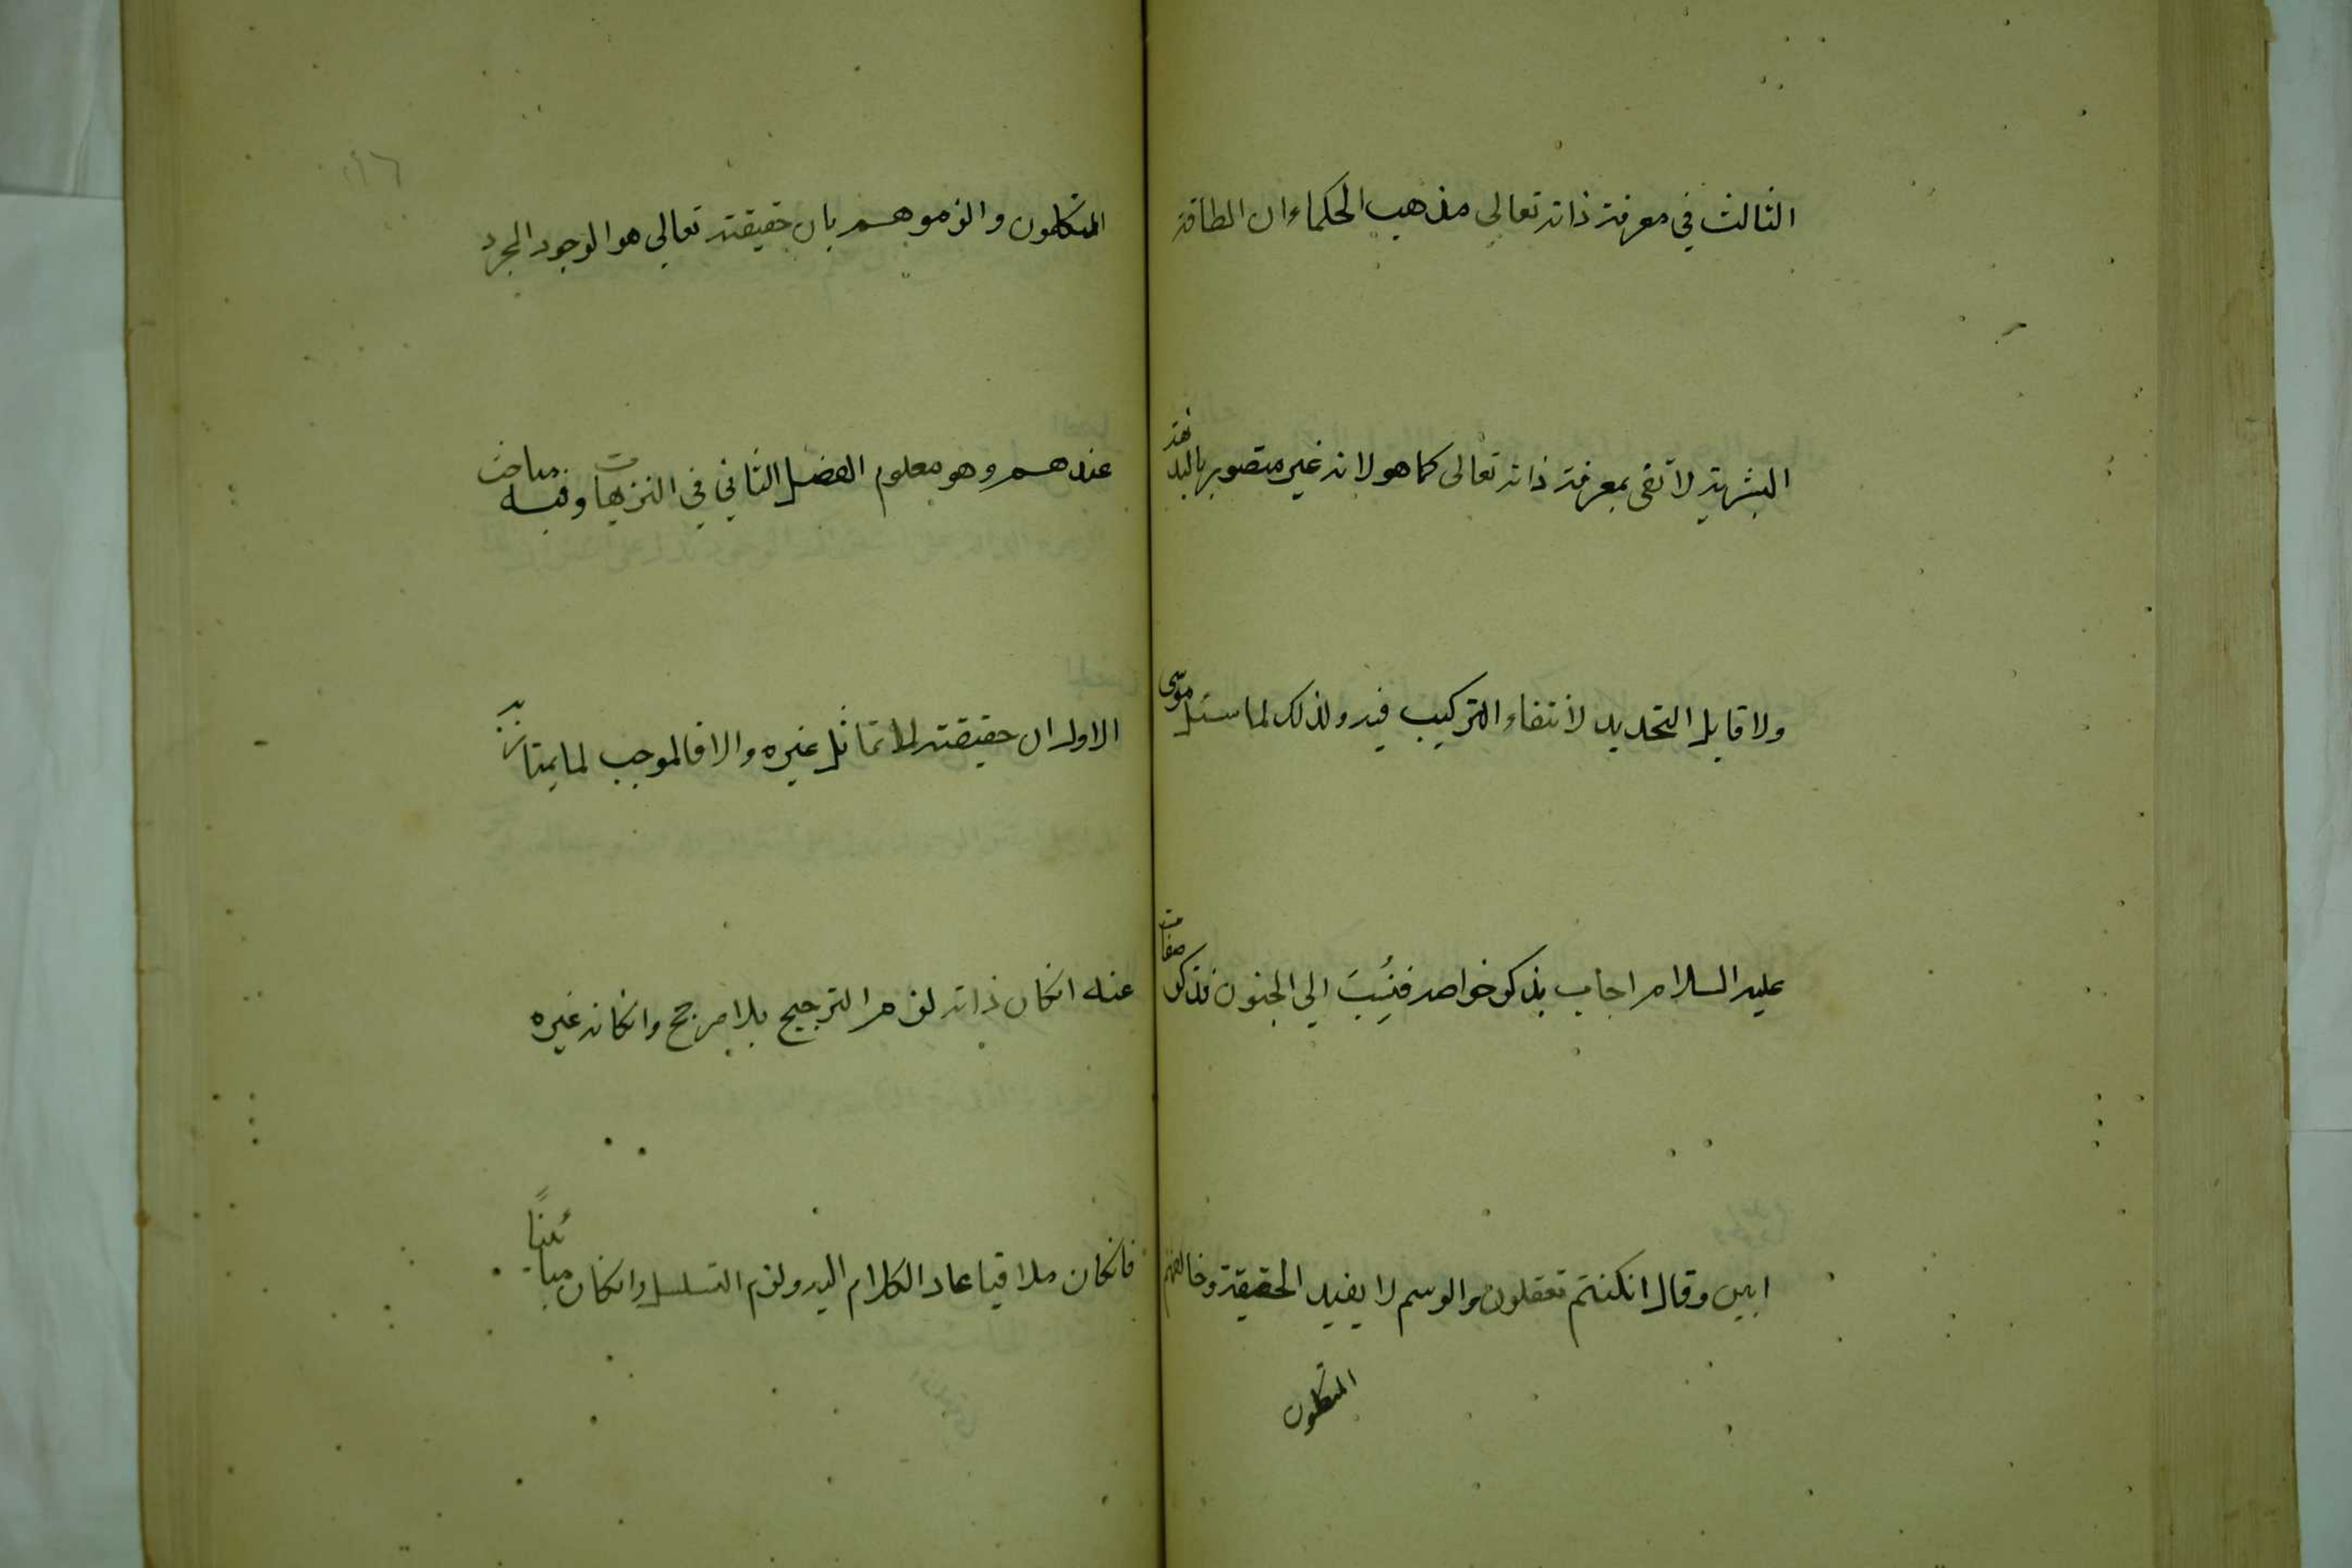 الثالث في معرفة ذاته تعالى مذهب الحكماء ان الطاقة
البشرية لا تفى بمعرفة ذاته تعالى كما هو لانه غير متصور بالبداهة
ولا قابل التحديد لانتفاء التركيب فيه ولذلك لما سئل موسى
عليه السلام اجاب بذكر خواصه فنُسِبَ الي الجنون فذكر صفات
ابين وقال انكنتم تعقلون والرسم لا يفيد الحقيقة وخالفهم
المتكلمون
١١٦
المتكلمون والزموهم بان حقيقته تعالي هو الوجود المجرد
عندهم وهو معلوم الفصل الثاني في التنزيهات وفيه مباحث
الاول ان حقيقته لا تماثل غيره والا فالموجب لما يمتاز به
عنه انكان ذاته لزم الترجيح بلا مرجح وانكانه غيره
فانكان ملاقيا عاد الكلام اليه ولزم التسلسل وانكان مبائنًا